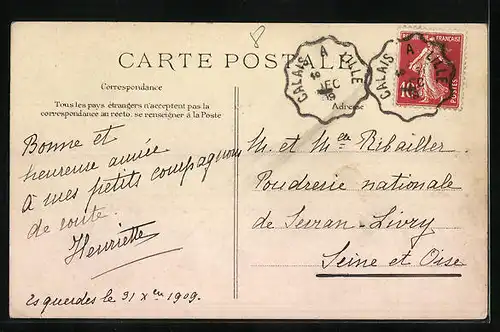 8
CARTE POSTALE
CALAIS A LILLE
CALAIS A LILLE
10
POSTES
Correspondance
Adresse
Tous les pays étrangers n'acceptent pas la
correspondance au recto. se renseigner à la Poste
Bonne et
heureuse année
à mes petits compagnons
de route.
Henriette
Esquerdes le 31 Xen 1909.
M. et Mme Ribailler
Poudrerie nationale
de Sevran-Livry
Seine et Oise